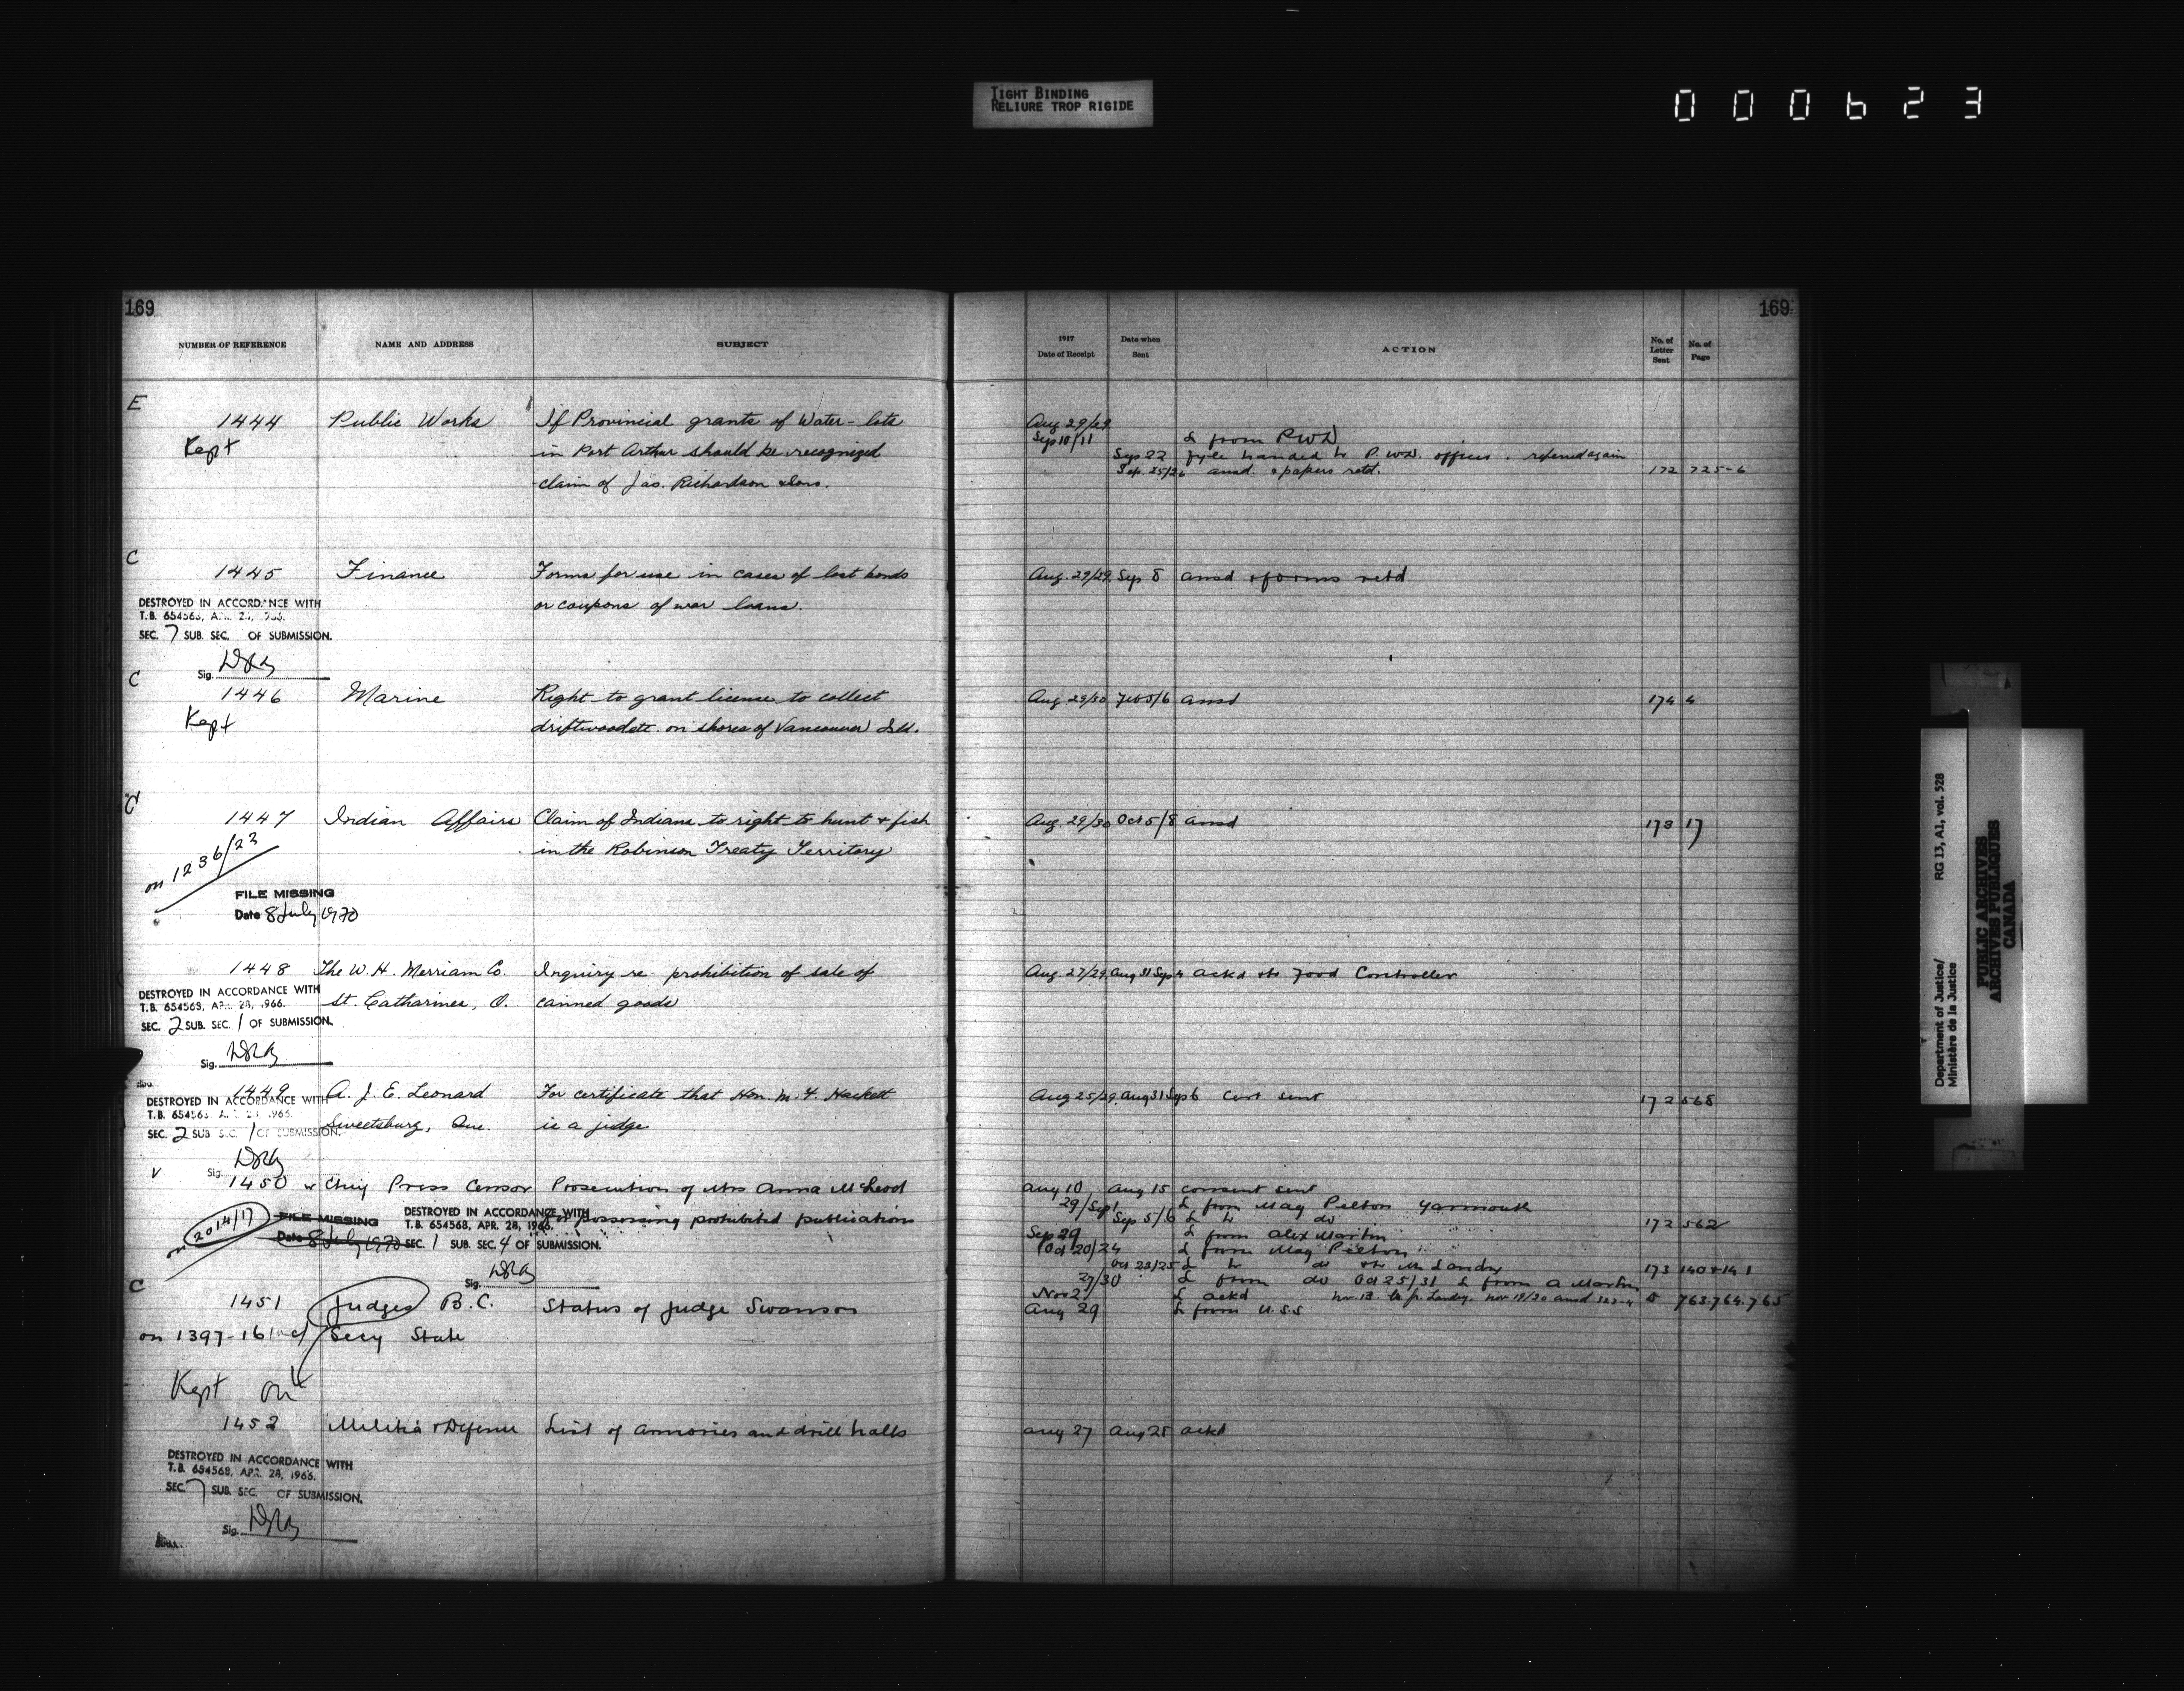 TIGHT BINDING
RELIURE TROP RIGIDE
000623
169
NUMBER OF REFERENCE NAME AND ADDRESS SUBJECT
E
1444 Public Works If Provincial grants of Water-lots
Kept in Port Arthur should be recognized
claim of Jas. Richardson & Sons.
C
1445 Finance Forms for use in cases of lost bonds
or coupons of war loans.
DESTROYED IN ACCORDANCE WITH
T.B. 654568, APR. 28, 1966.
SEC. 7 SUB. SEC. OF SUBMISSION.
Sig.
C
1446 Marine Right to grant license to collect
Kept driftwood etc. on shores of Vancouver Isld.
C
1447 Indian Affairs Claim of Indians to right to hunt & fish
in the Robinson Treaty Territory
on 1236/23
FILE MISSING
Date 8 July 1970
1448 The W. H. Merriam Co. Inquiry re prohibition of sale of
St. Catharines, O. canned goods
DESTROYED IN ACCORDANCE WITH
T.B. 654568, APR. 28, 1966.
SEC. 2 SUB. SEC. 1 OF SUBMISSION.
Sig.
1449 A. J. E. Leonard For certificate that Hon. M. F. Hackett
Sweetsburg, Que. is a judge
DESTROYED IN ACCORDANCE WITH
T.B. 654568, 1966.
SEC. 2 SUB SEC. 1 OF SUBMISSION.
Sig.
1450 Chief Press Censor Prosecution of Mrs Anna McLeod
for possessing prohibited publications
on 2014/17
FILE MISSING
Date 8 July 1970
DESTROYED IN ACCORDANCE WITH
T.B. 654568, APR. 28, 1966.
SEC. 1 SUB. SEC. 4 OF SUBMISSION.
Sig.
C
1451 Judges B.C. Status of Judge Swanson
on 1397-16 Secy State
Kept on
1452 Militia & Defence List of Armories and drill halls
DESTROYED IN ACCORDANCE WITH
T.B. 654568, APR. 28, 1966.
SEC. 7 SUB. SEC. OF SUBMISSION.
Sig.
169
1917
Date of Receipt Date when Sent ACTION No. of Letter Sent No. of Page
Aug 29/29
Sep 10/11 L from PWD
Sep 22 fyle handed to P.W.D. officer. referred again
Sep. 25/26 ansd. & papers retd. 172 725-6
Aug. 29/29 Sep 8 ansd & forms retd
Aug. 29/30 Feb 5/6 ansd 174 4
Aug. 29/30 Oct 5/8 ansd 173 17
Aug. 27/29 Aug 31 Sep 4 ackd & to Food Controller
Aug 25/29 Aug 31 Sep 6 Cert sent 172 568
Aug 10 Aug 15 consent sent
29/Sep 1 L from Mag Pelton Yarmouth
Sep 5/6 L to do 172 562
Sep 29 L from Alex Martin
Oct 20/24 L from Mag Pelton
Oct 23/25 L to do & to Mr Landry 173 140 & 141
27/30 L from do Oct 25/31 L from A Martin
Nov 2 L ackd 763.764.765
Aug 29 L from U.S.S
Aug 27 Aug 28 ackd
Department of Justice/
Ministère de la Justice
RG 13, A1, vol. 528
PUBLIC ARCHIVES
ARCHIVES PUBLIQUES
CANADA